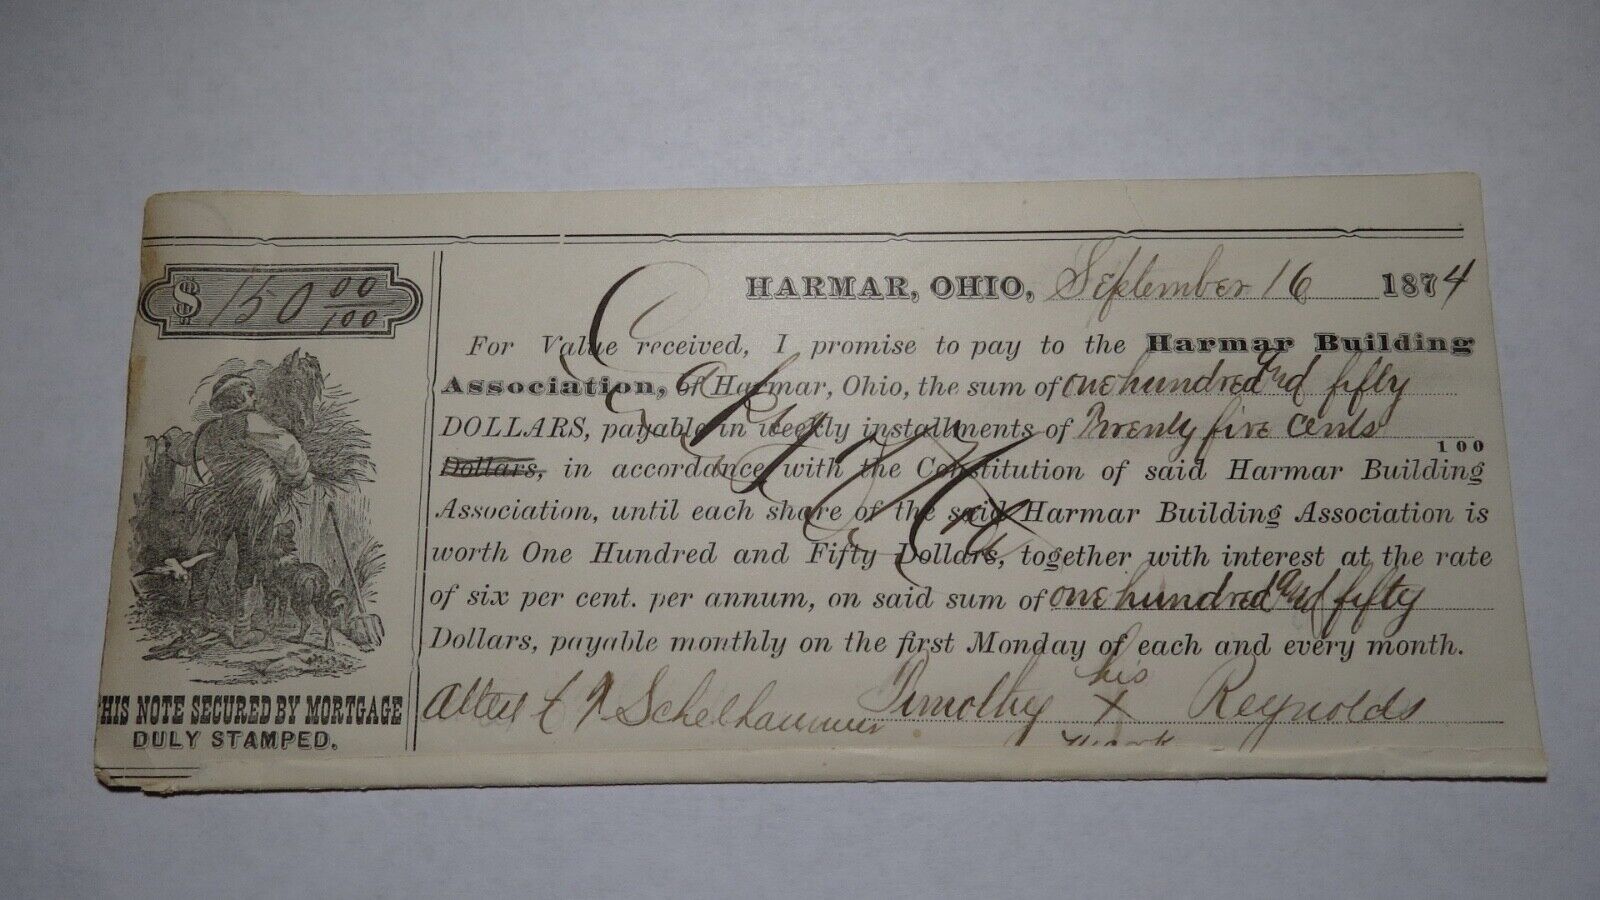 $ 150 00/100
HARMAR, OHIO, September 16 1874
For Value received, I promise to pay to the Harmar Building
Association, of Harmar, Ohio, the sum of one hundred and fifty
DOLLARS, payable in weekly installments of Twenty five cents
100
Dollars, in accordance with the Constitution of said Harmar Building
Association, until each share of the said Harmar Building Association is
worth One Hundred and Fifty Dollars, together with interest at the rate
of six per cent. per annum, on said sum of one hundred and fifty
Dollars, payable monthly on the first Monday of each and every month.
HIS NOTE SECURED BY MORTGAGE
DULY STAMPED.
Attest Schelhammer Timothy his X Reynolds
mark